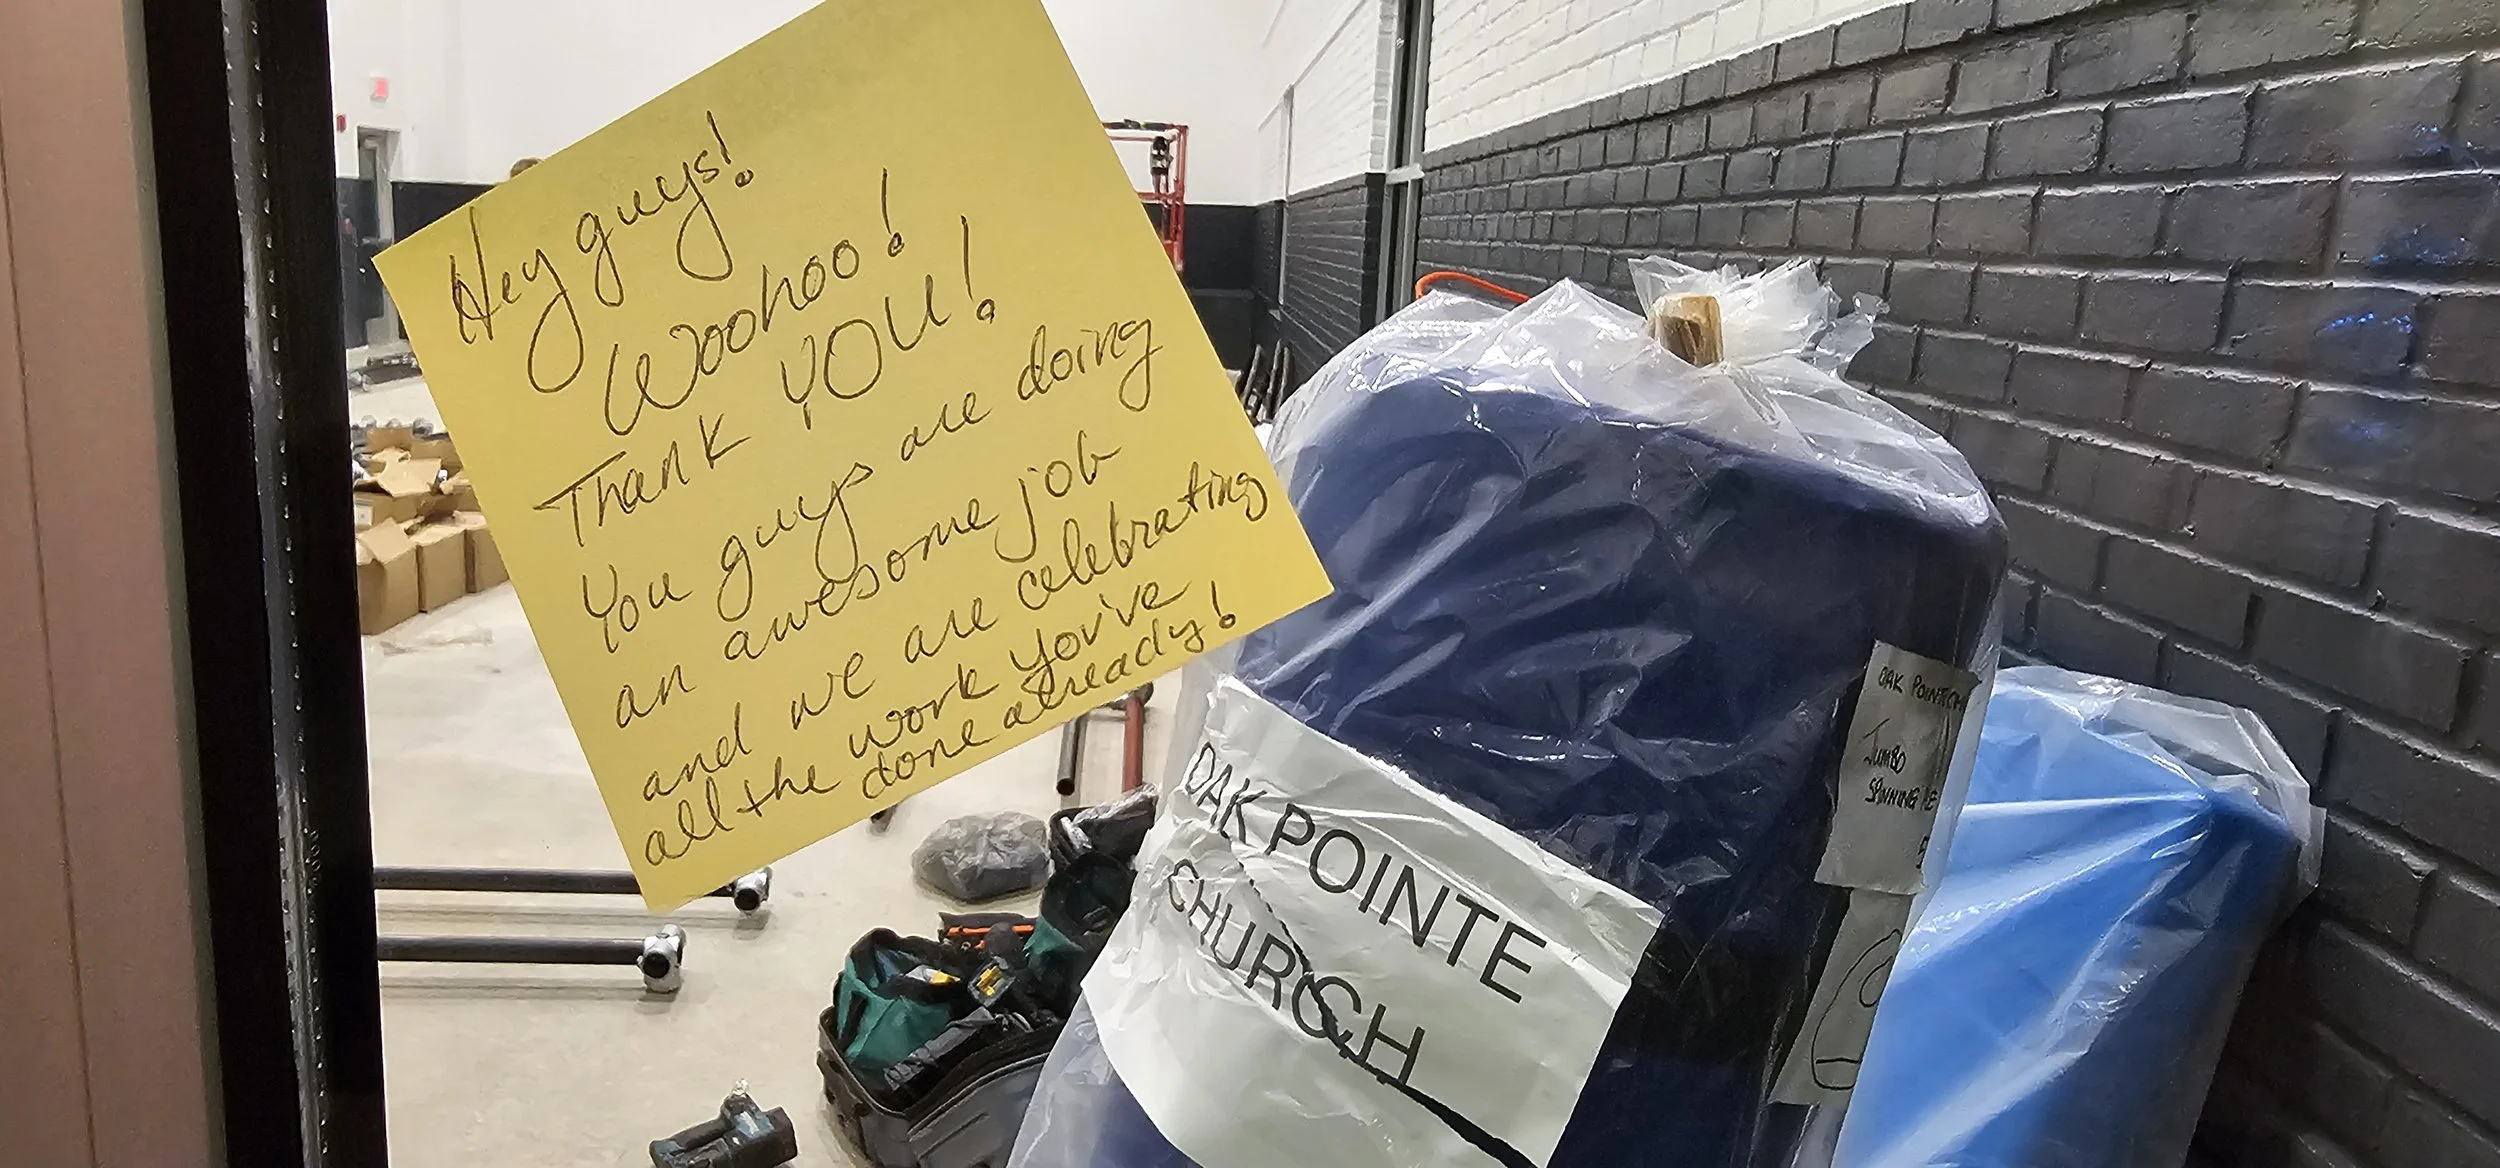 Hey guys!
Woohoo!
Thank YOU!
You guys are doing
an awesome job
and we are celebrating
all the work you've
done already!
OAK POINTE
CHURCH
OAK POINTE CH
JUMBO
SPINNING